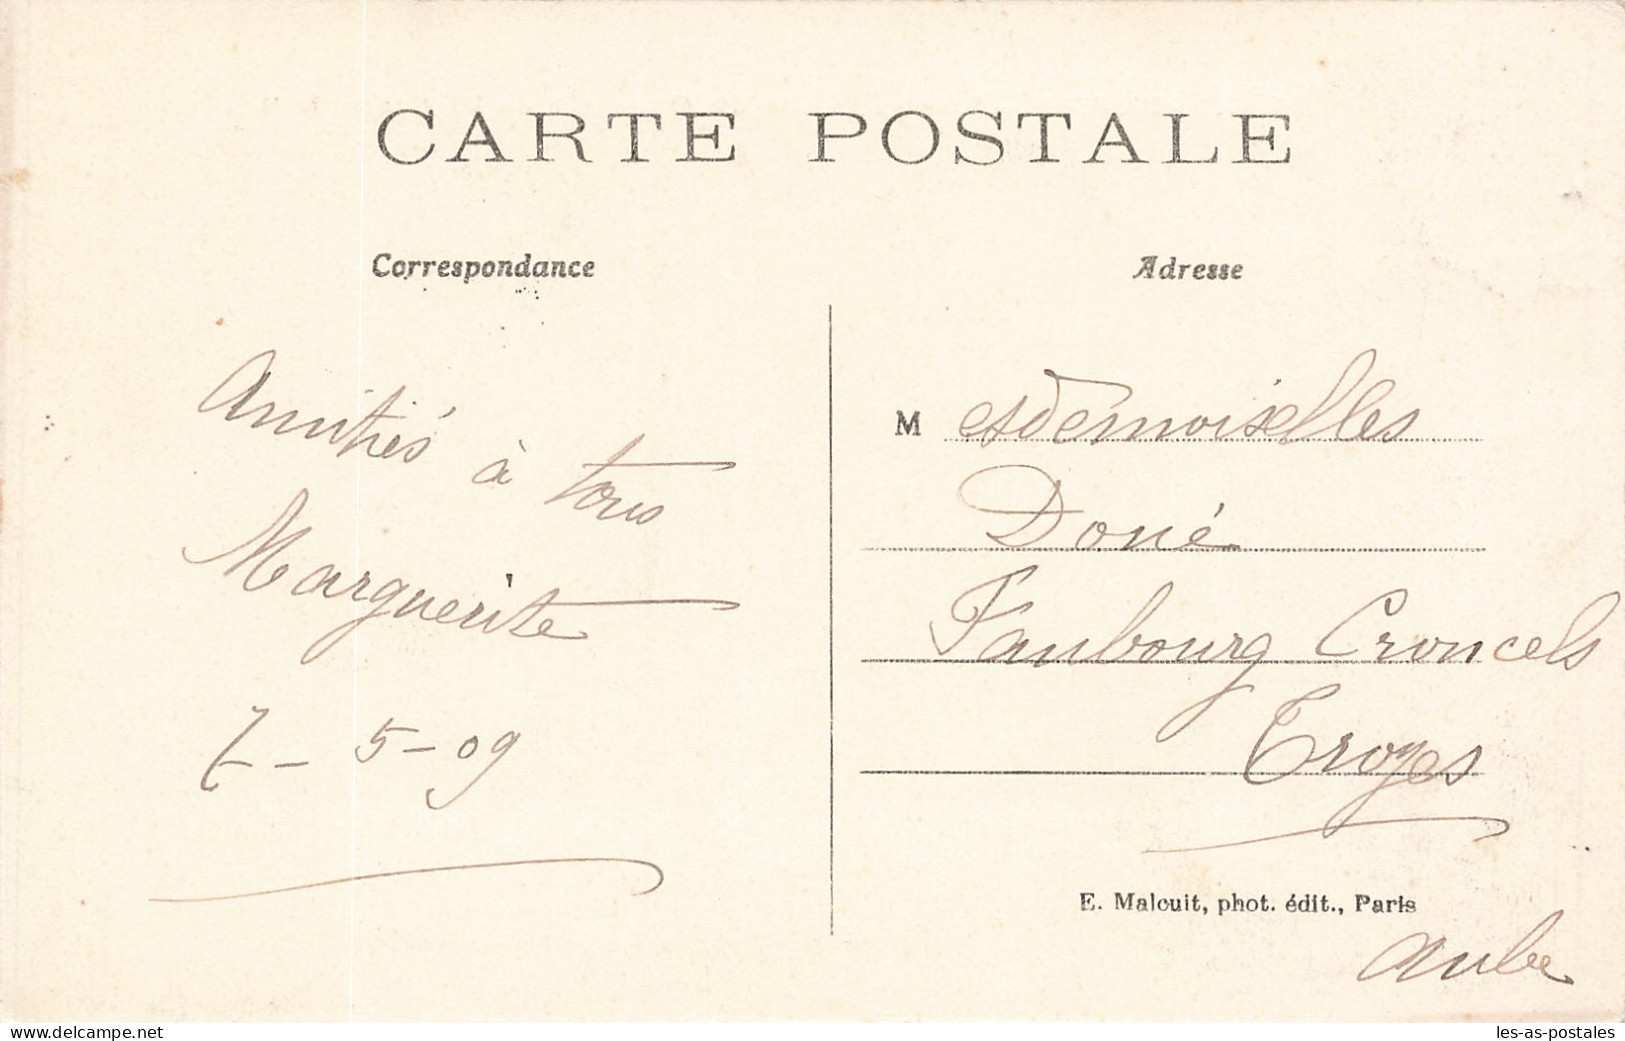 CARTE POSTALE
Correspondance
Amitiés à tous
Marguerite
7-5-09
Adresse
Mesdemoiselles
Doné
Faubourg Croncels
Troyes
E. Malcuit, phot. édit., Paris
Aube
www.delcampe.net
les-as-postales